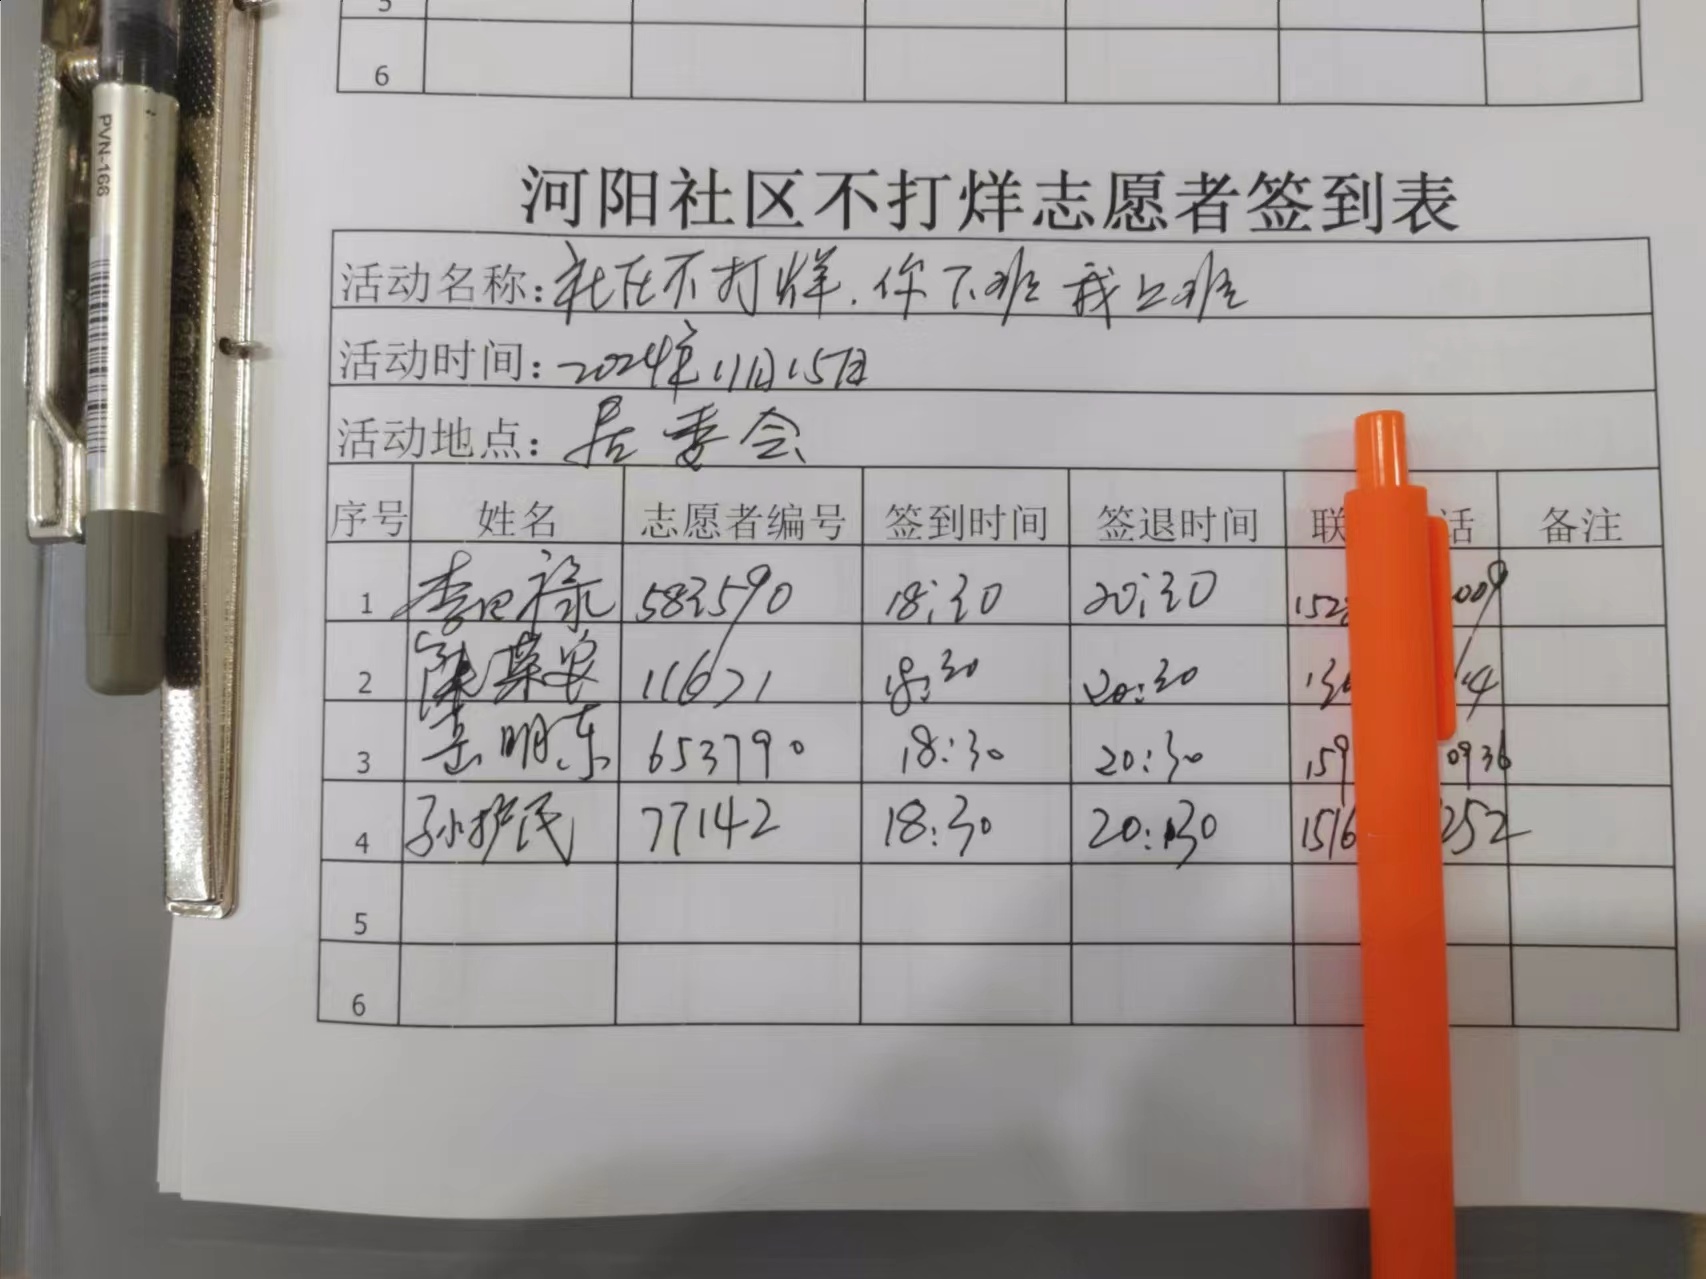 5
6
PVN-166
河阳社区不打烊志愿者签到表
活动名称：社区不打烊.你下班我上班
活动时间：2024年11月15日
活动地点：居委会
序号 姓名 志愿者编号 签到时间 签退时间 联 话 备注
1 李日禄 583590 18:30 20:30 152 009
2 陈荣安 11671 18:30 20:30 136 14
3 袁明东 653790 18:30 20:30 159 0936
4 孙护民 77142 18:30 20:30 1516 252
5
6